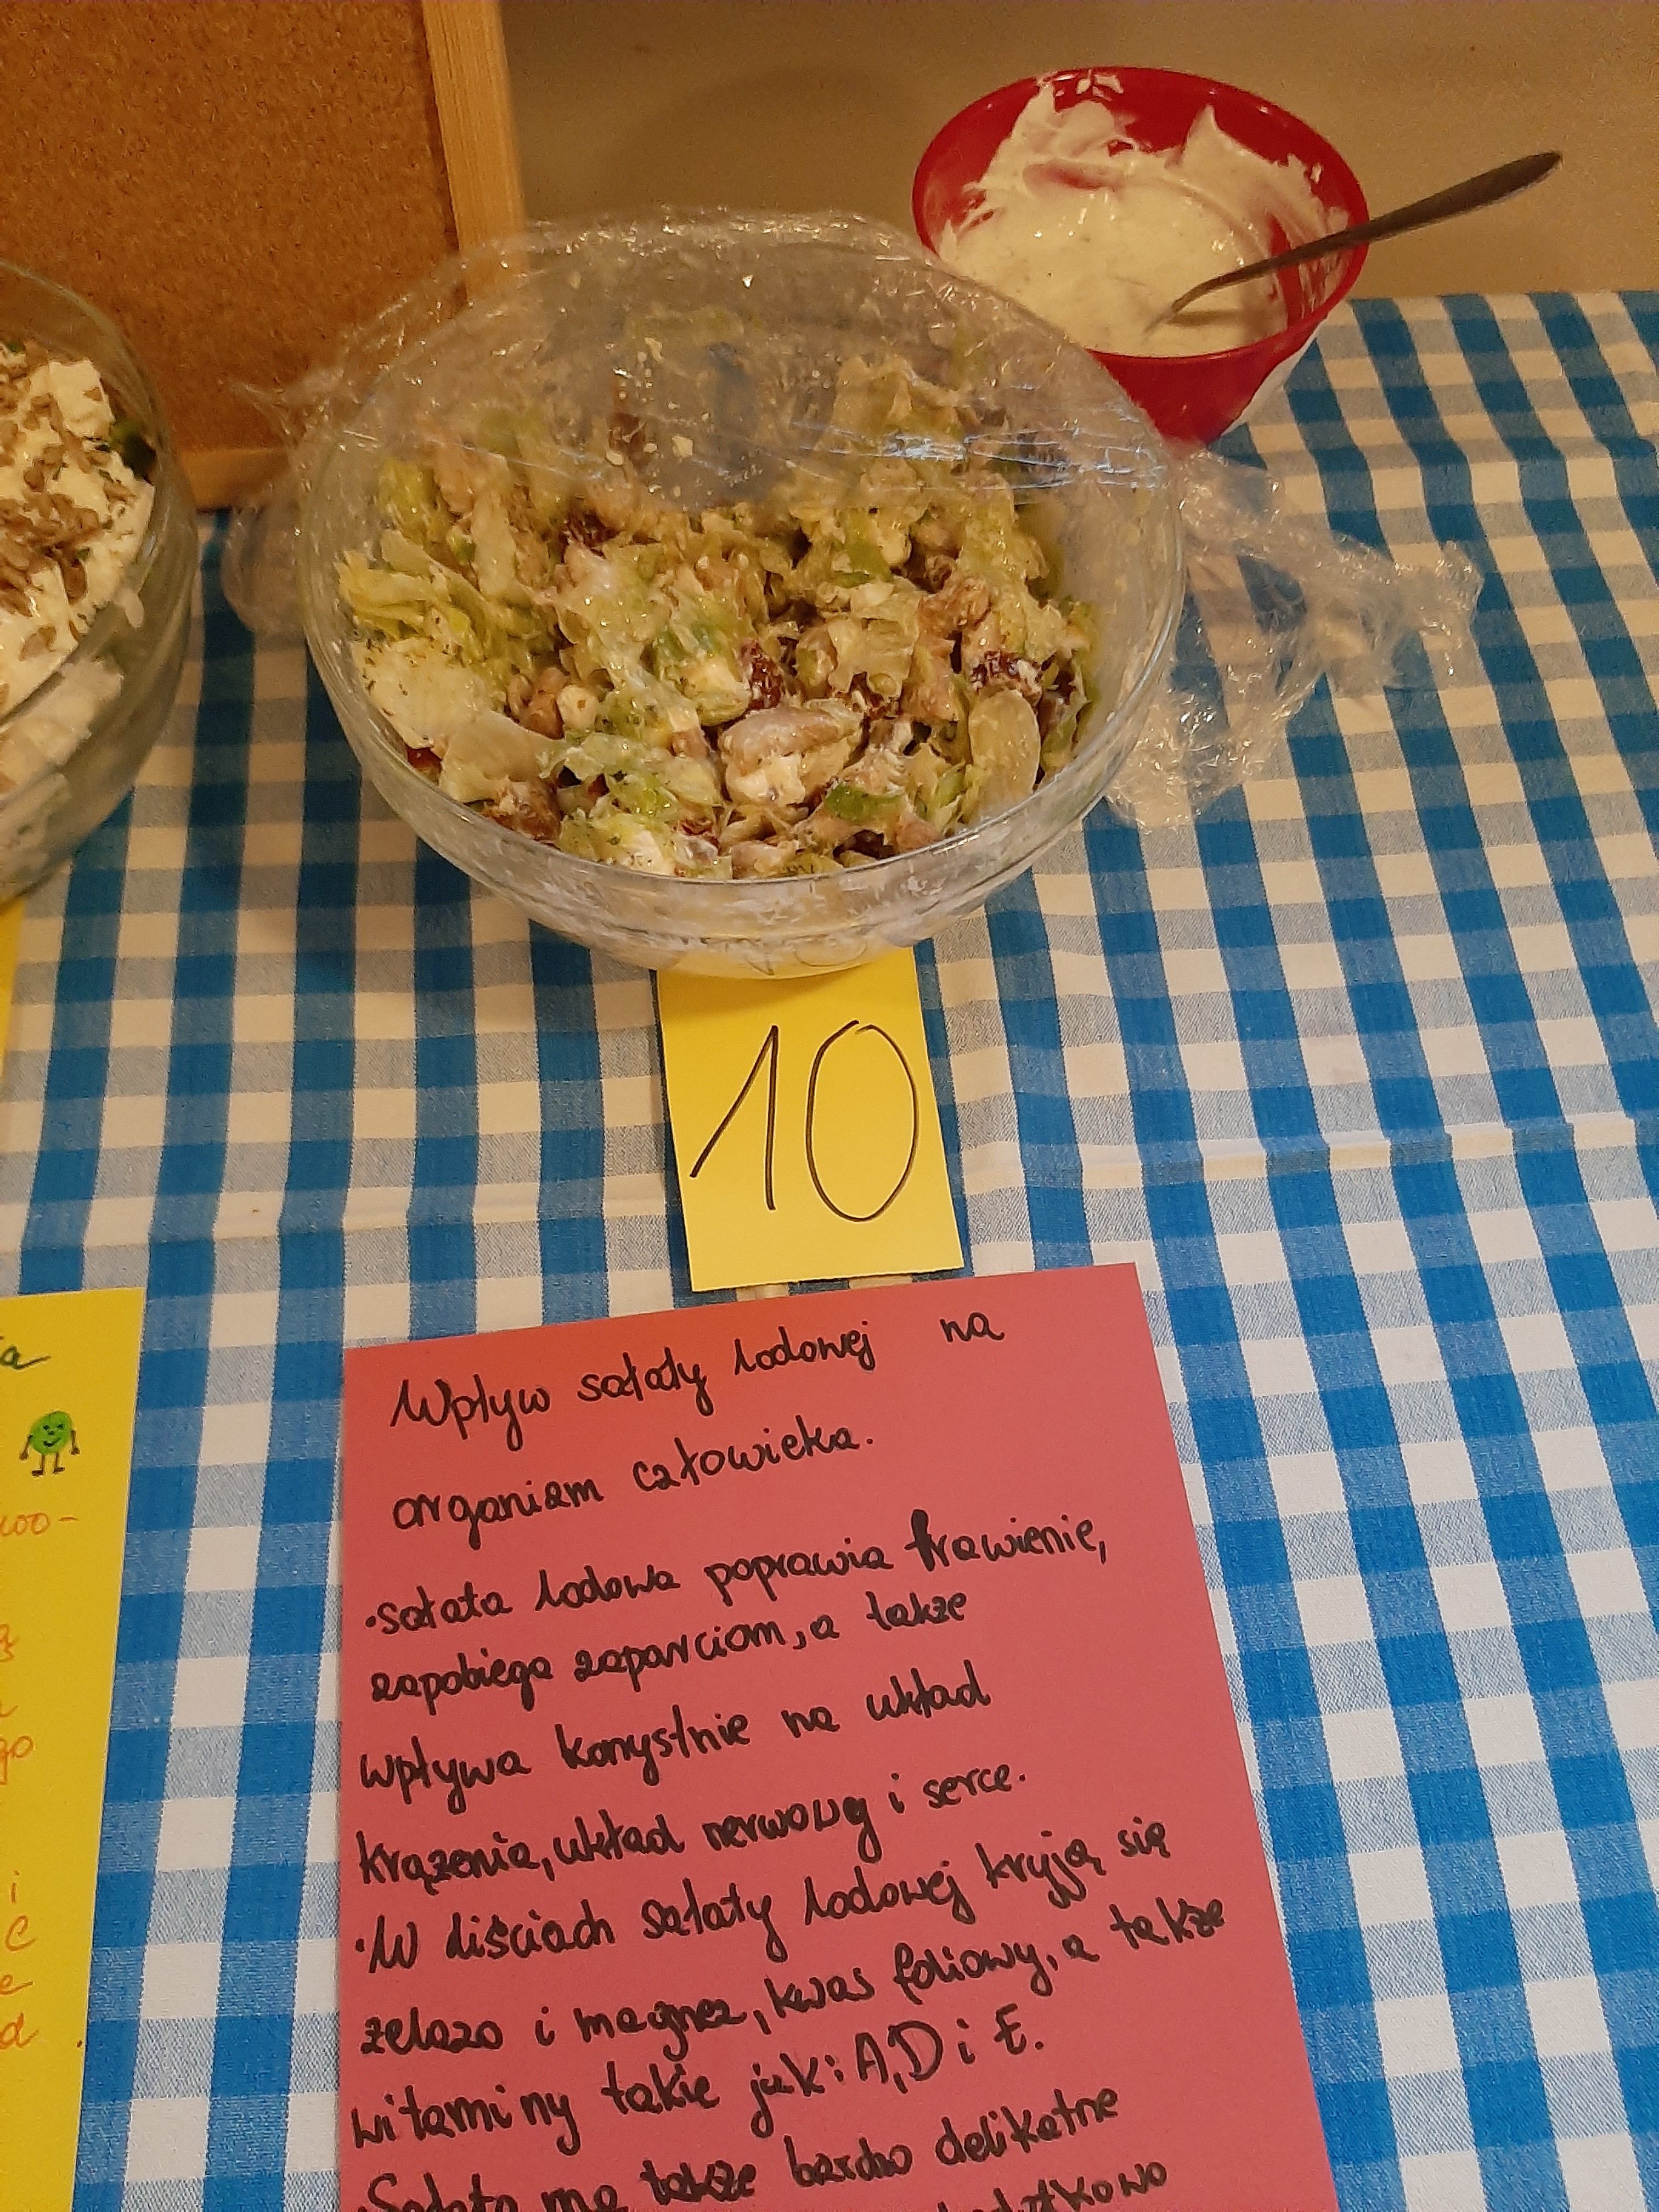 10
Wpływ sałaty lodowej na
organizm człowieka.
•sałata lodowa poprawia trawienie,
zapobiega zaparciom, a także
wpływa korzystnie na układ
krążenia, układ nerwowy i serce.
•W liściach sałaty lodowej kryją się
żelazo i magnez, kwas foliowy, a także
witaminy takie jak: A, D i E.
•Sałata ma także bardzo delikatne